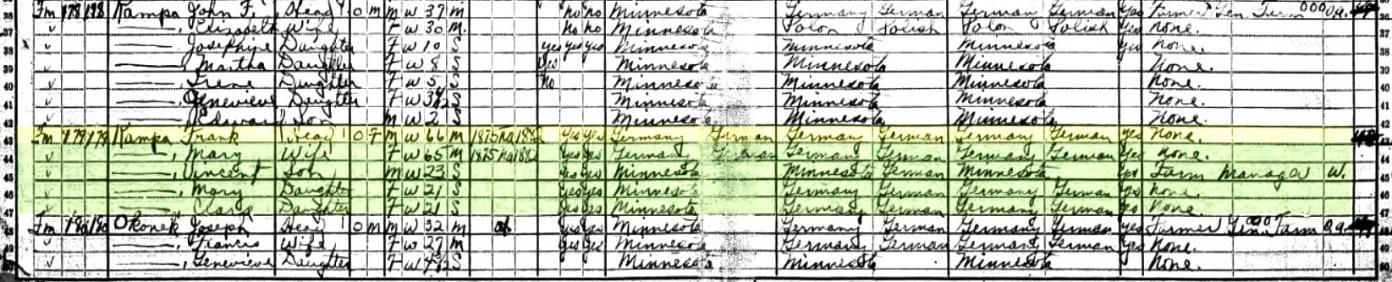 Fm 178 198 Kampa John F. Head O M M W 37 M no no Minnesota Germany German Germany German Yes Farmer Gen Farm O.A.
37 ———, Elizabeth Wife F W 30 M. no no Minnesota Polon Polish Polon Polish Yes None. 37
38 ———, Josephine Daughter F W 10 S yes yes yes Minnesota Minnesota Minnesota Yes None. 38
39 ———, Martha Daughter F W 8 S yes Minnesota Minnesota Minnesota None.
40 ———, Irene Daughter F W 5 S no Minnesota Minnesota Minnesota None. 40
41 ———, Genevieve Daughter F W S Minnesota Minnesota Minnesota None. 41
42 ———, Edward Son M W 2 S Minnesota Minnesota Minnesota None. 42
43 Fm 179 179 Kampa Frank Head O F M W 66 M 1875 Na 1882 Yes Yes Germany German Germany German Germany German yes None.
44 ———, Mary Wife F W 65 M 1875 Na 1882 Yes Yes Germany German Germany German Germany German Yes None. 44
45 ———, Vincent Son M W 23 S Yes Yes Minnesota Minnesota German Germany German Yes Farm Manager W. 45
46 ———, Mary Daughter F W 21 S Yes Yes Minnesota Germany German Germany German Yes None. 46
47 ———, Clara Daughter F W 21 S Yes Yes Minnesota Germany German Germany German Yes None. 47
Fm 180 180 Okonek Joseph Head O M M W 32 M Yes Yes Minnesota Germany German Germany German Yes Farmer Gen Farm O.A.
———, Francis Wife F W 27 M Yes Yes Minnesota Germany German Germany German Yes None.
———, Genevieve Daughter F W S Minnesota Minnesota Minnesota None.